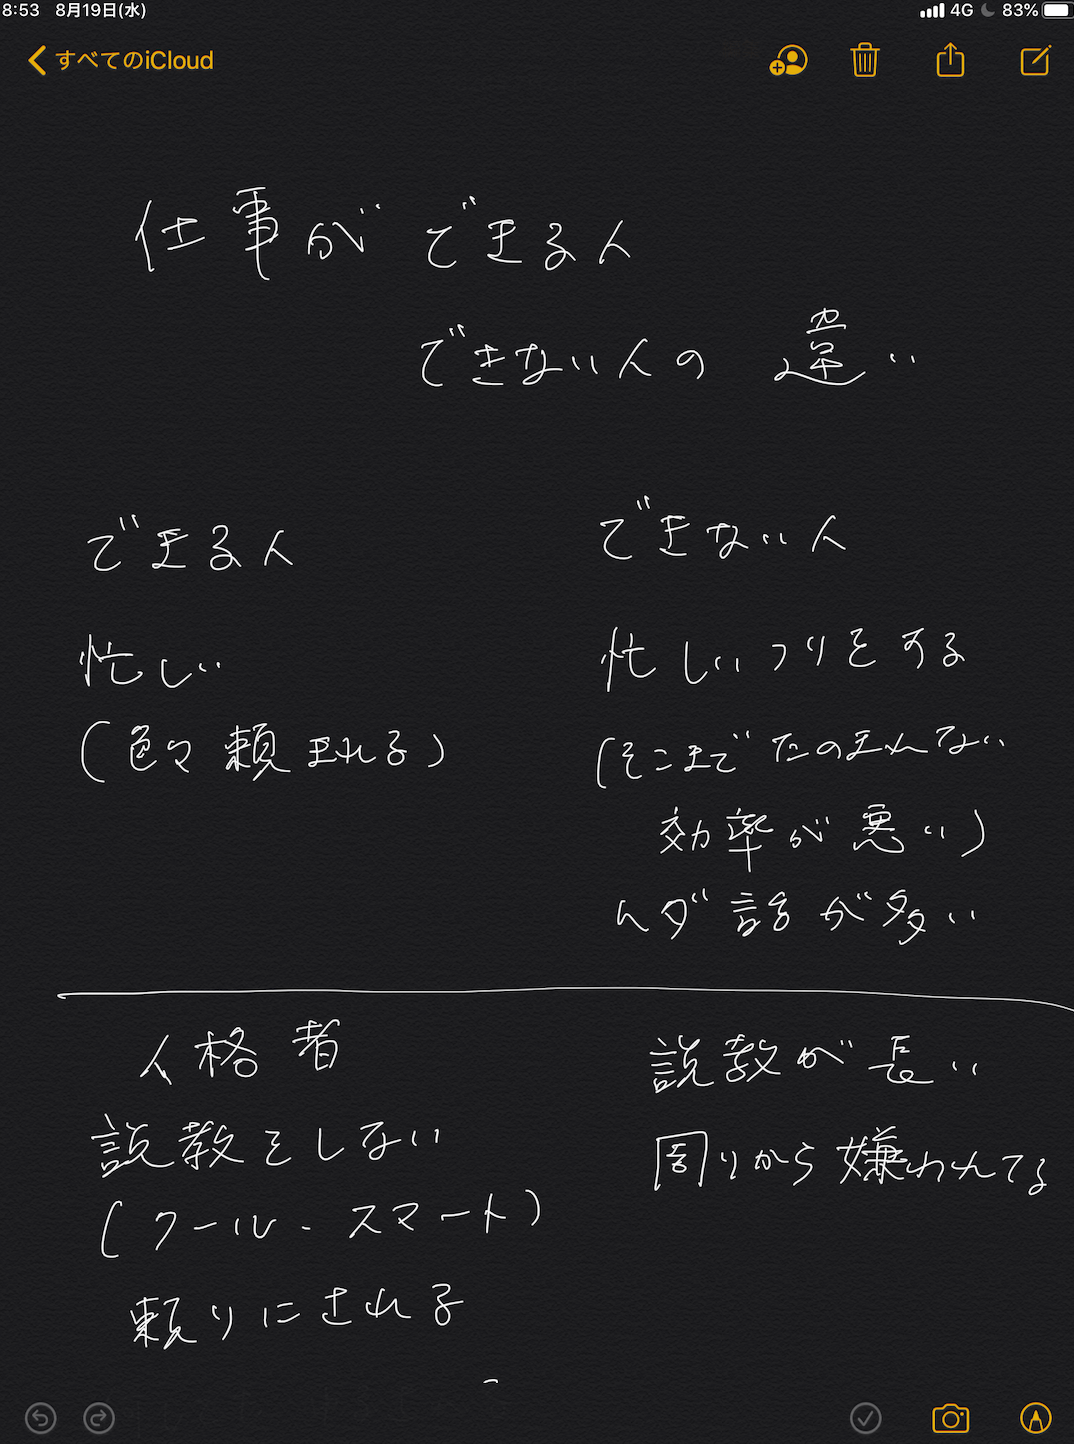 8:53 8月19日(水) 4G 83%
すべてのiCloud
仕事ができる人
できない人の 違い
できる人
忙しい
(色々頼まれる)
できない人
忙しいフリをする
(そこまでたのまれない
効率が悪い)
ムダ話が多い
人格者
説教をしない
(クール・スマート)
頼りにされる
説教が長い
周りから嫌われてる